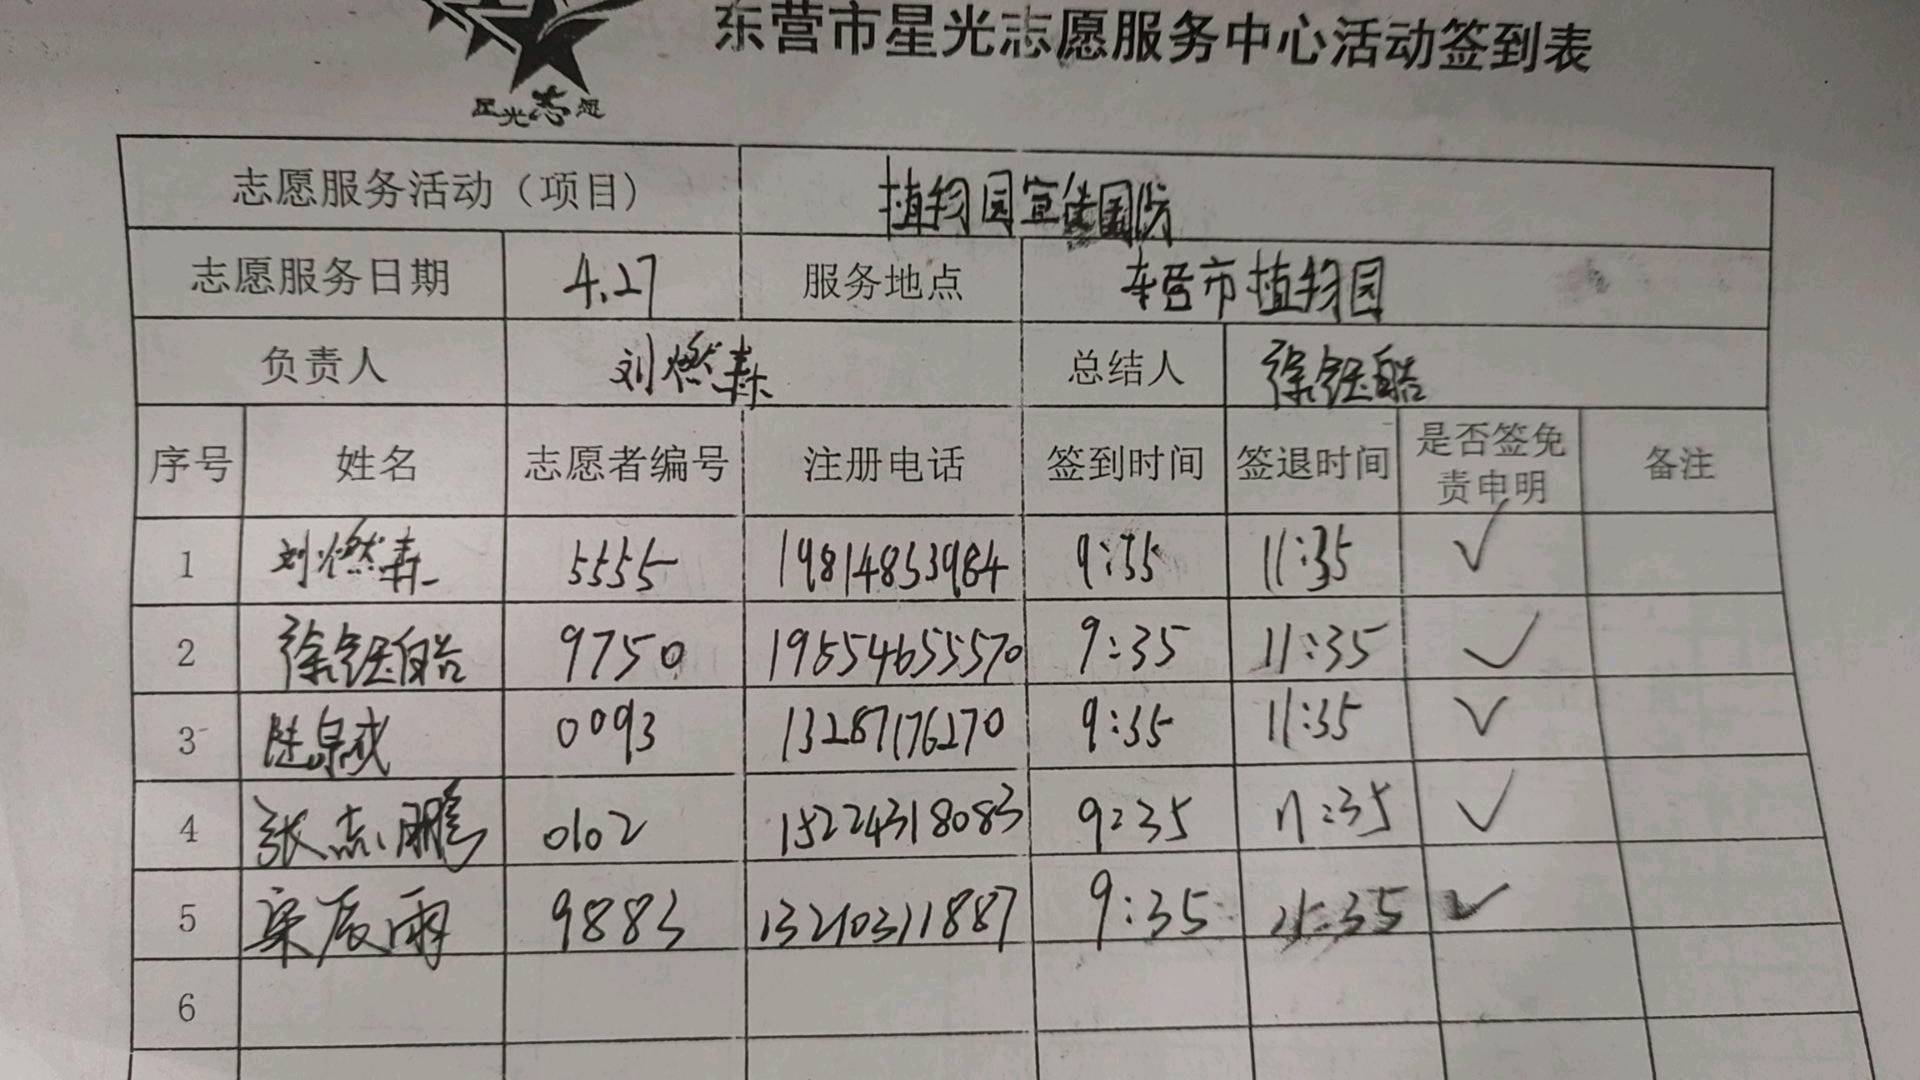 东营市星光志愿服务中心活动签到表
星光志愿
志愿服务活动（项目） 植物园宣传国防
志愿服务日期 4.27 服务地点 东营市植物园
负责人 刘燃 总结人 徐钰皓
序号 姓名 志愿者编号 注册电话 签到时间 签退时间 是否签免责申明 备注
1 刘燃 5555 19814853984 9:35 11:35 ✓
2 徐钰皓 9750 19554655570 9:35 11:35 ✓
3 陆泉成 0093 13287176270 9:35 11:35 ✓
4 张志鹏 0102 15224318083 9:35 11:35 ✓
5 梁辰雨 9883 13210311887 9:35 11:35 ✓
6